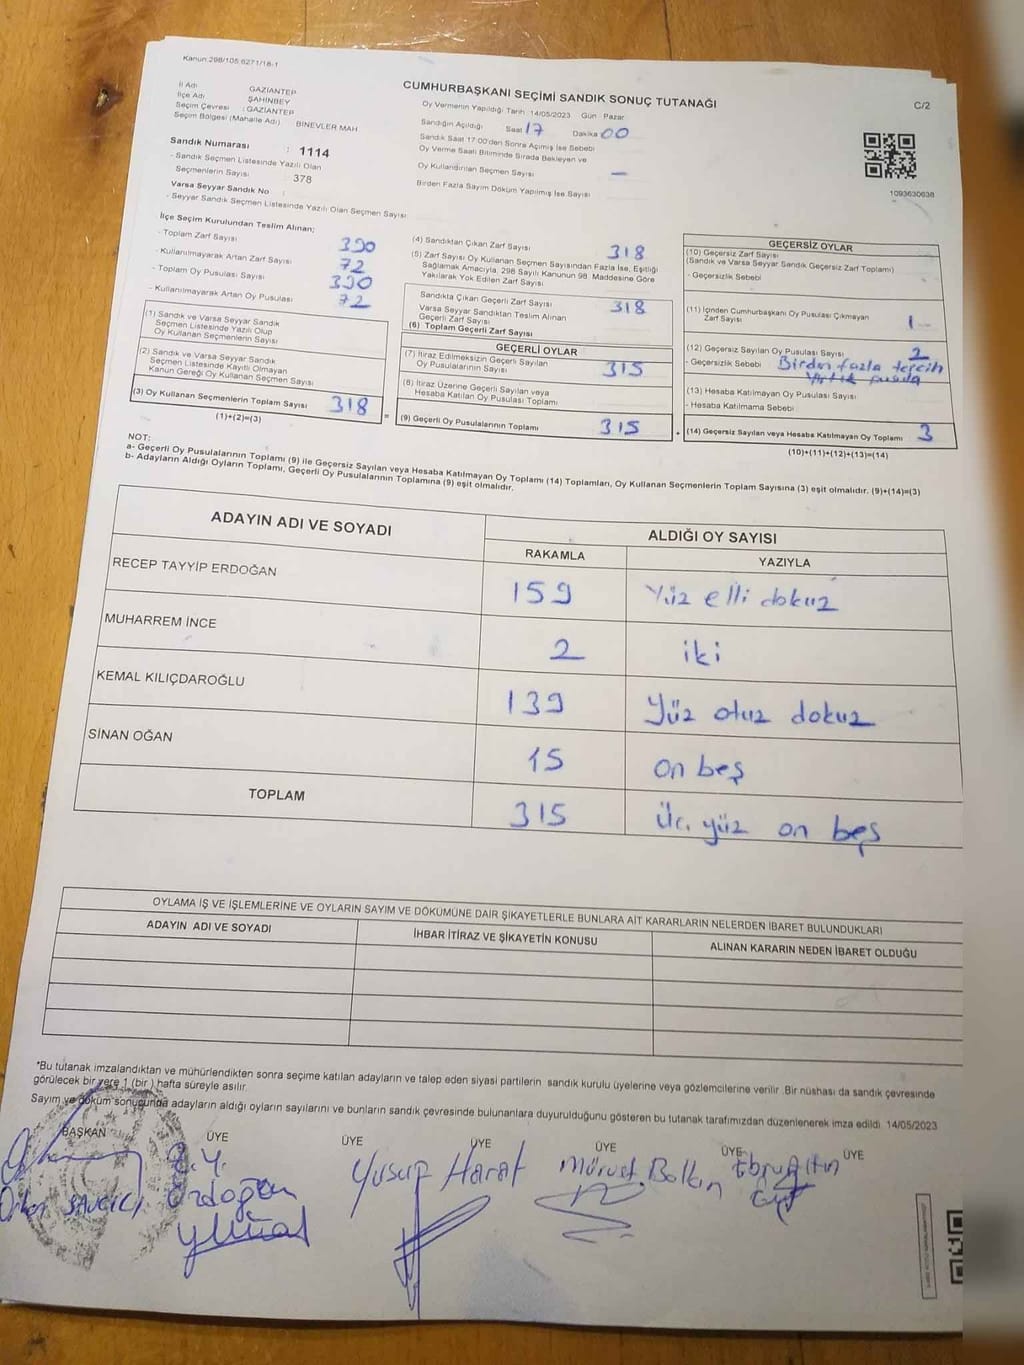 Kanun:298/105,6271/18-1
CUMHURBAŞKANI SEÇİMİ SANDIK SONUÇ TUTANAĞI
C/2
İl Adı GAZİANTEP
İlçe Adı ŞAHİNBEY
Seçim Çevresi : GAZİANTEP
Seçim Bölgesi (Mahalle Adı) BİNEVLER MAH.
Sandık Numarası : 1114
- Sandık Seçmen Listesinde Yazılı Olan
Seçmenlerin Sayısı 378
Varsa Seyyar Sandık No :
- Seyyar Sandık Seçmen Listesinde Yazılı Olan Seçmen Sayısı
Oy Vermenin Yapıldığı Tarih 14/05/2023 Gün Pazar
Sandığın Açıldığı Saat 17 Dakika 00
Sandık Saat 17:00'den Sonra Açılmış İse Sebebi
Oy Verme Saati Bitiminde Sırada Bekleyen ve
Oy Kullandırılan Seçmen Sayısı —
Birden Fazla Sayım Döküm Yapılmış İse Sayısı
1093630638
İlçe Seçim Kurulundan Teslim Alınan;
- Toplam Zarf Sayısı 390
- Kullanılmayarak Artan Zarf Sayısı 72
- Toplam Oy Pusulası Sayısı 390
- Kullanılmayarak Artan Oy Pusulası 72
(1) Sandık ve Varsa Seyyar Sandık
Seçmen Listesinde Yazılı Olup
Oy Kullanan Seçmenlerin Sayısı
(2) Sandık ve Varsa Seyyar Sandık
Seçmen Listesinde Kayıtlı Olmayan
Kanun Gereği Oy Kullanan Seçmen Sayısı
(3) Oy Kullanan Seçmenlerin Toplam Sayısı 318
(1)+(2)=(3)
(4) Sandıktan Çıkan Zarf Sayısı 318
(5) Zarf Sayısı Oy Kullanan Seçmen Sayısından Fazla İse, Eşitliği
Sağlamak Amacıyla, 298 Sayılı Kanunun 98. Maddesine Göre
Yakılarak Yok Edilen Zarf Sayısı
Sandıkta Çıkan Geçerli Zarf Sayısı 318
Varsa Seyyar Sandıktan Teslim Alınan
Geçerli Zarf Sayısı
(6) Toplam Geçerli Zarf Sayısı
GEÇERLİ OYLAR
(7) İtiraz Edilmeksizin Geçerli Sayılan
Oy Pusulalarının Sayısı 315
(8) İtiraz Üzerine Geçerli Sayılan veya
Hesaba Katılan Oy Pusulası Toplamı
(9) Geçerli Oy Pusulalarının Toplamı 315
GEÇERSİZ OYLAR
(10) Geçersiz Zarf Sayısı
(Sandık ve Varsa Seyyar Sandık Geçersiz Zarf Toplamı)
- Geçersizlik Sebebi
(11) İçinden Cumhurbaşkanı Oy Pusulası Çıkmayan
Zarf Sayısı 1
(12) Geçersiz Sayılan Oy Pusulası Sayısı 2
- Geçersizlik Sebebi Birden fazla tercih
pusula
(13) Hesaba Katılmayan Oy Pusulası Sayısı
- Hesaba Katılmama Sebebi
(14) Geçersiz Sayılan veya Hesaba Katılmayan Oy Toplamı 3
(10)+(11)+(12)+(13)=(14)
NOT:
a- Geçerli Oy Pusulalarının Toplamı (9) ile Geçersiz Sayılan veya Hesaba Katılmayan Oy Toplamı (14) Toplamları, Oy Kullanan Seçmenlerin Toplam Sayısına (3) eşit olmalıdır. (9)+(14)=(3)
b- Adayların Aldığı Oyların Toplamı, Geçerli Oy Pusulalarının Toplamına (9) eşit olmalıdır.
ADAYIN ADI VE SOYADI
ALDIĞI OY SAYISI
RAKAMLA YAZIYLA
RECEP TAYYİP ERDOĞAN 159 Yüz elli dokuz
MUHARREM İNCE 2 iki
KEMAL KILIÇDAROĞLU 139 Yüz otuz dokuz
SİNAN OĞAN 15 on beş
TOPLAM 315 Üç yüz on beş
OYLAMA İŞ VE İŞLEMLERİNE VE OYLARIN SAYIM VE DÖKÜMÜNE DAİR ŞİKAYETLERLE BUNLARA AİT KARARLARIN NELERDEN İBARET BULUNDUKLARI
ADAYIN ADI VE SOYADI
İHBAR İTİRAZ VE ŞİKAYETİN KONUSU
ALINAN KARARIN NEDEN İBARET OLDUĞU
*Bu tutanak imzalandıktan ve mühürlendikten sonra seçime katılan adayların ve talep eden siyasi partilerin sandık kurulu üyelerine veya gözlemcilerine verilir. Bir nüshası da sandık çevresinde
görülecek bir yere 1 (bir) hafta süreyle asılır.
Sayım ve döküm sonucunda adayların aldığı oyların sayılarını ve bunların sandık çevresinde bulunanlara duyurulduğunu gösteren bu tutanak tarafımızdan düzenlenerek imza edildi. 14/05/2023
BAŞKAN ÜYE ÜYE ÜYE ÜYE ÜYE ÜYE
Yusuf Harat
Ebru Altın